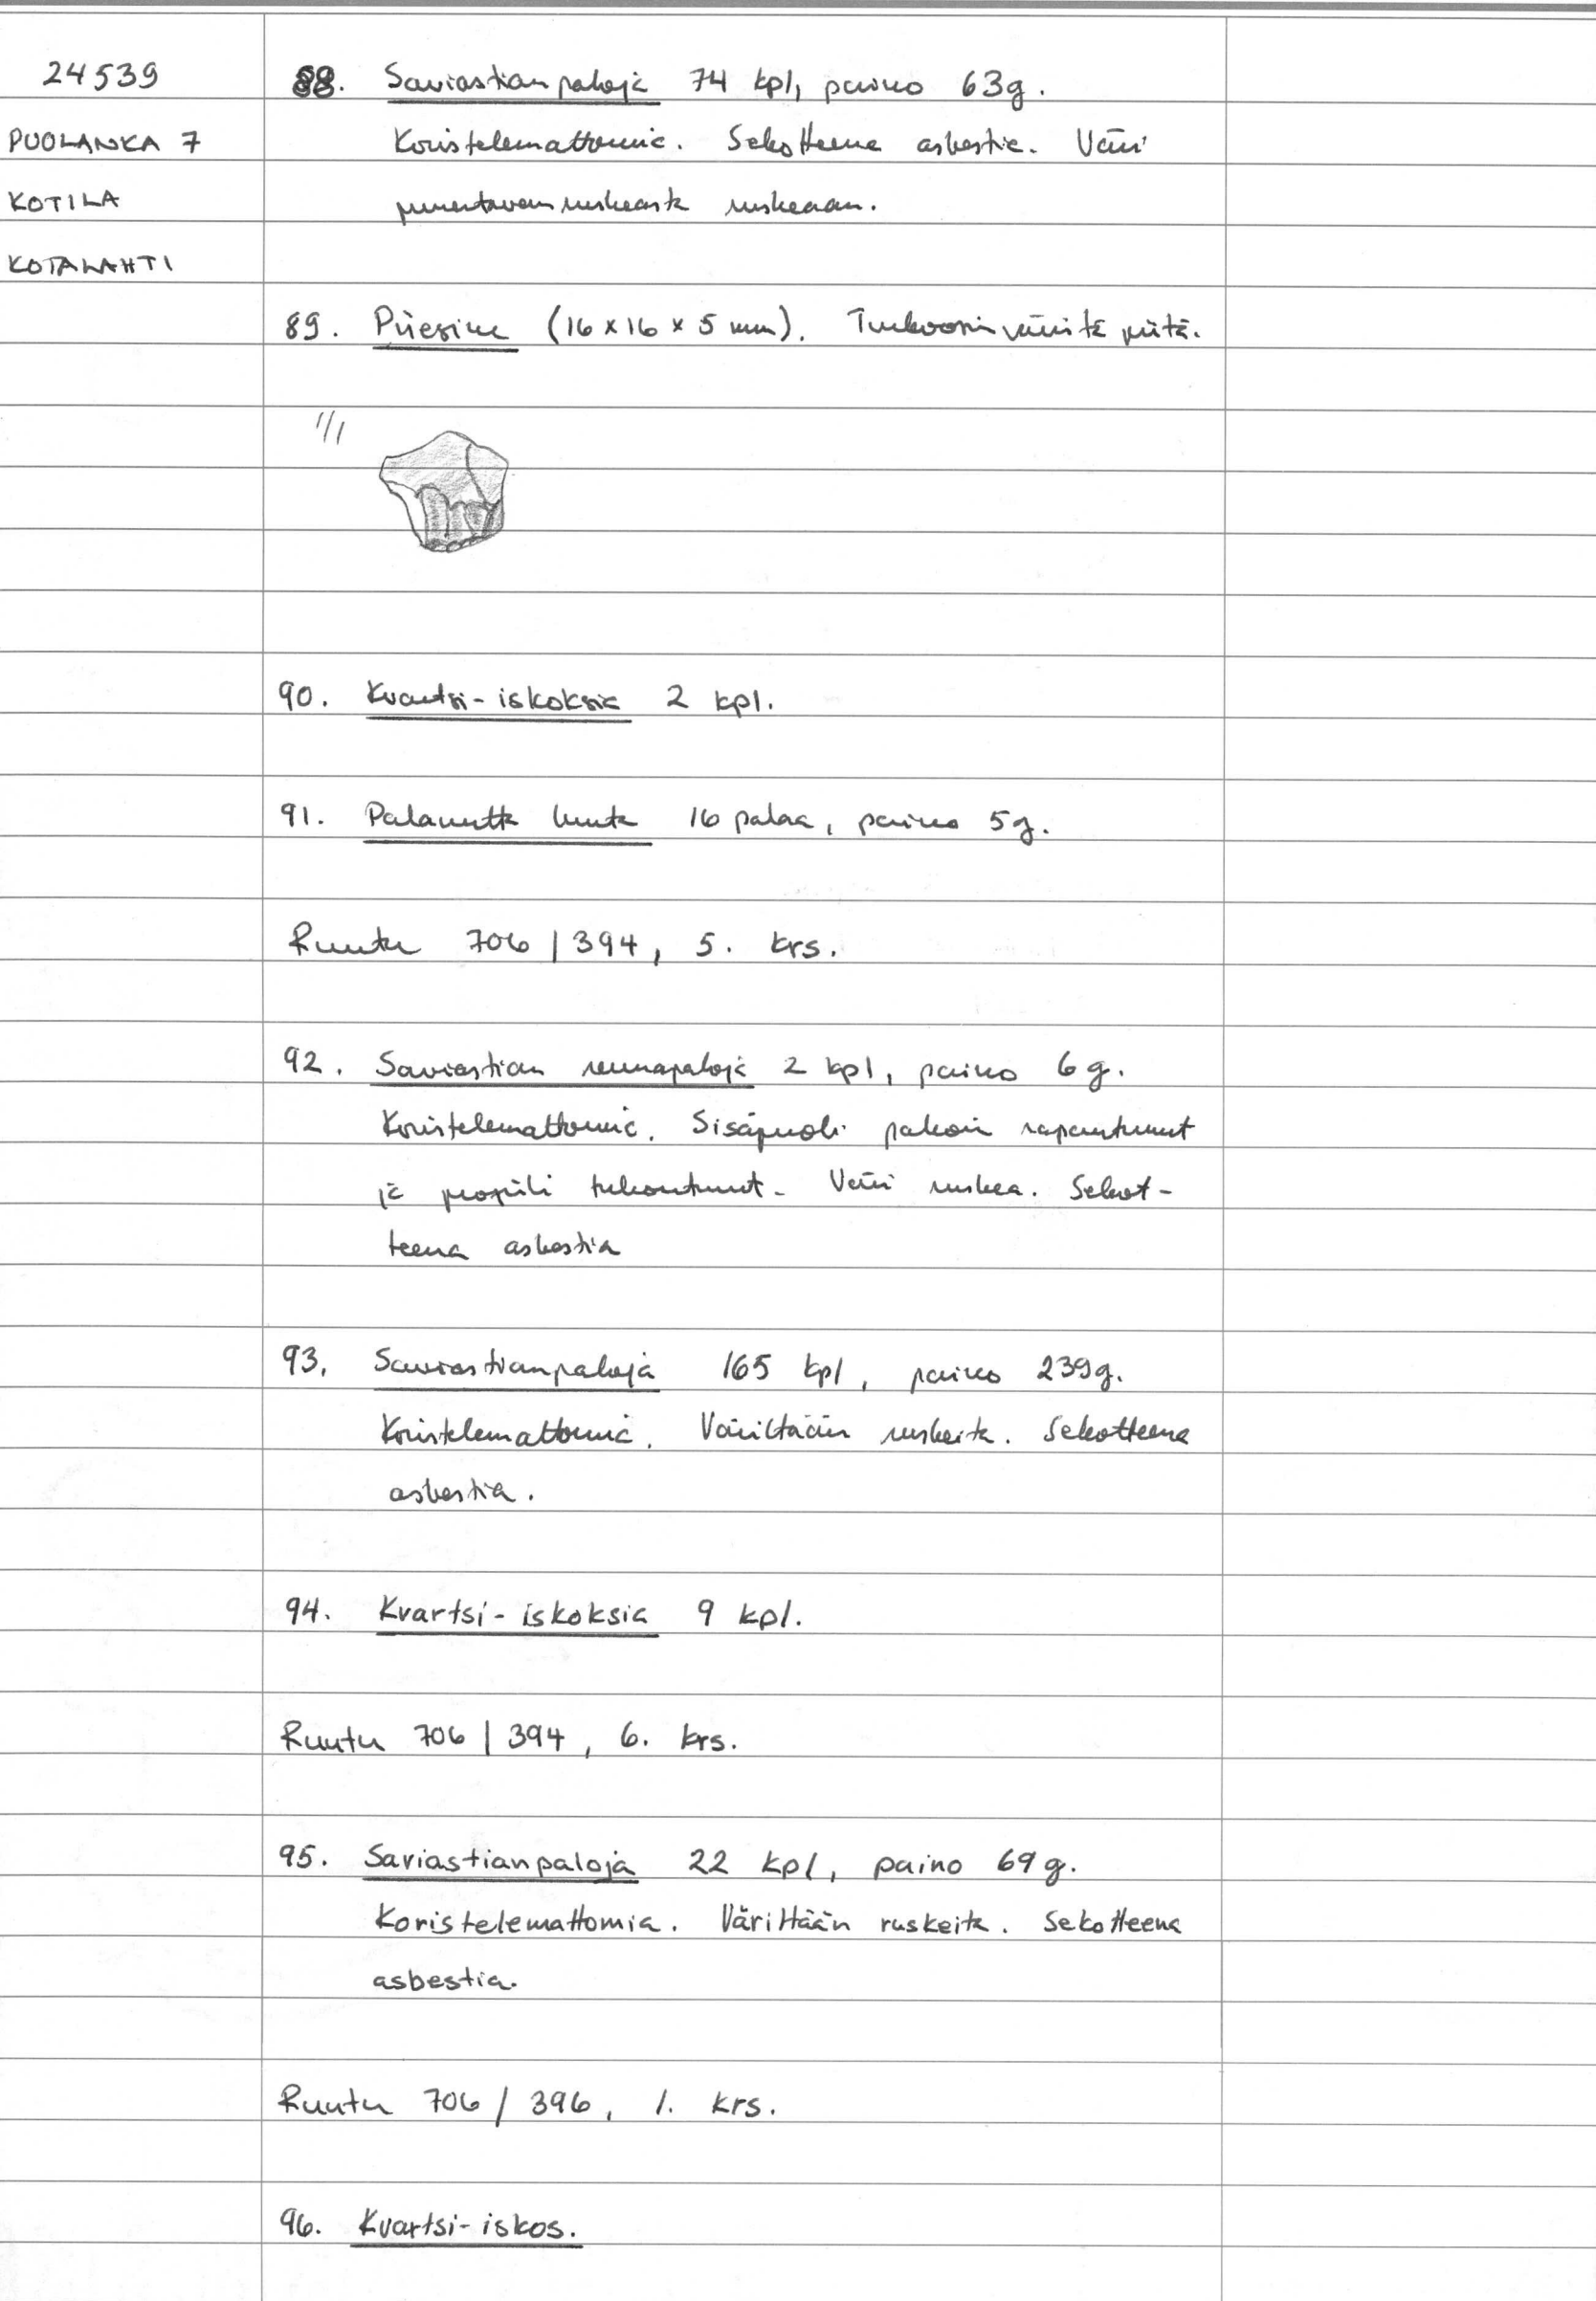 24539
PUOLANKA 7
KOTILA
KOTALAHTI
88. Saviastianpaloja 74 kpl, paino 63g.
Koristelemattomia. Sekotteena asbestia. Väri
punertavanruskeasta ruskeaan.
89. Piiesine (16 x 16 x 5 mm). Turkoosinväristä piitä.
1/1
90. Kvartsi-iskoksia 2 kpl.
91. Palanutta luuta 16 palaa, paino 5g.
Ruutu 706 / 394, 5. krs.
92. Saviastian reunapaloja 2 kpl, paino 6g.
Koristelemattomia. Sisäpuoli paloin rapautunut
ja profiili tuhoutunut. Väri ruskea. Sekot-
teena asbestia
93. Saviastianpaloja 165 kpl, paino 239g.
Koristelemattomia. Väriltään ruskeita. Sekotteena
asbestia.
94. Kvartsi-iskoksia 9 kpl.
Ruutu 706 / 394, 6. krs.
95. Saviastianpaloja 22 kpl, paino 69g.
Koristelemattomia. Värittään ruskeita. Sekotteena
asbestia.
Ruutu 706 / 396, 1. krs.
96. Kvartsi-iskos.